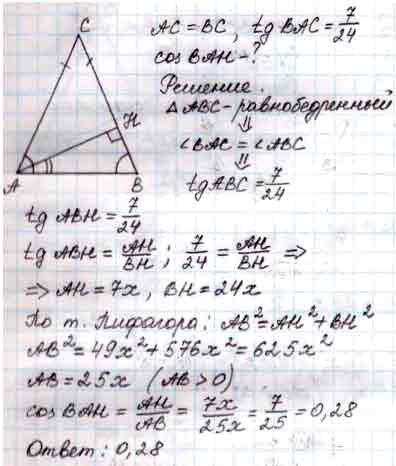 C
H
A
B
AC = BC, tg BAC = 7/24
cos BAH - ?
Решение.
△ABC - равнобедренный
⇓
∠BAC = ∠ABC
⇓
tg ABC = 7/24
tg ABH = 7/24
tg ABH = AH/BH; 7/24 = AH/BH ⇒
⇒ AH = 7x, BH = 24x
По т. Пифагора: AB² = AH² + BH²
AB² = 49x² + 576x² = 625x²
AB = 25x (AB > 0)
cos BAH = AH/AB = 7x/25x = 7/25 = 0,28
Ответ: 0,28